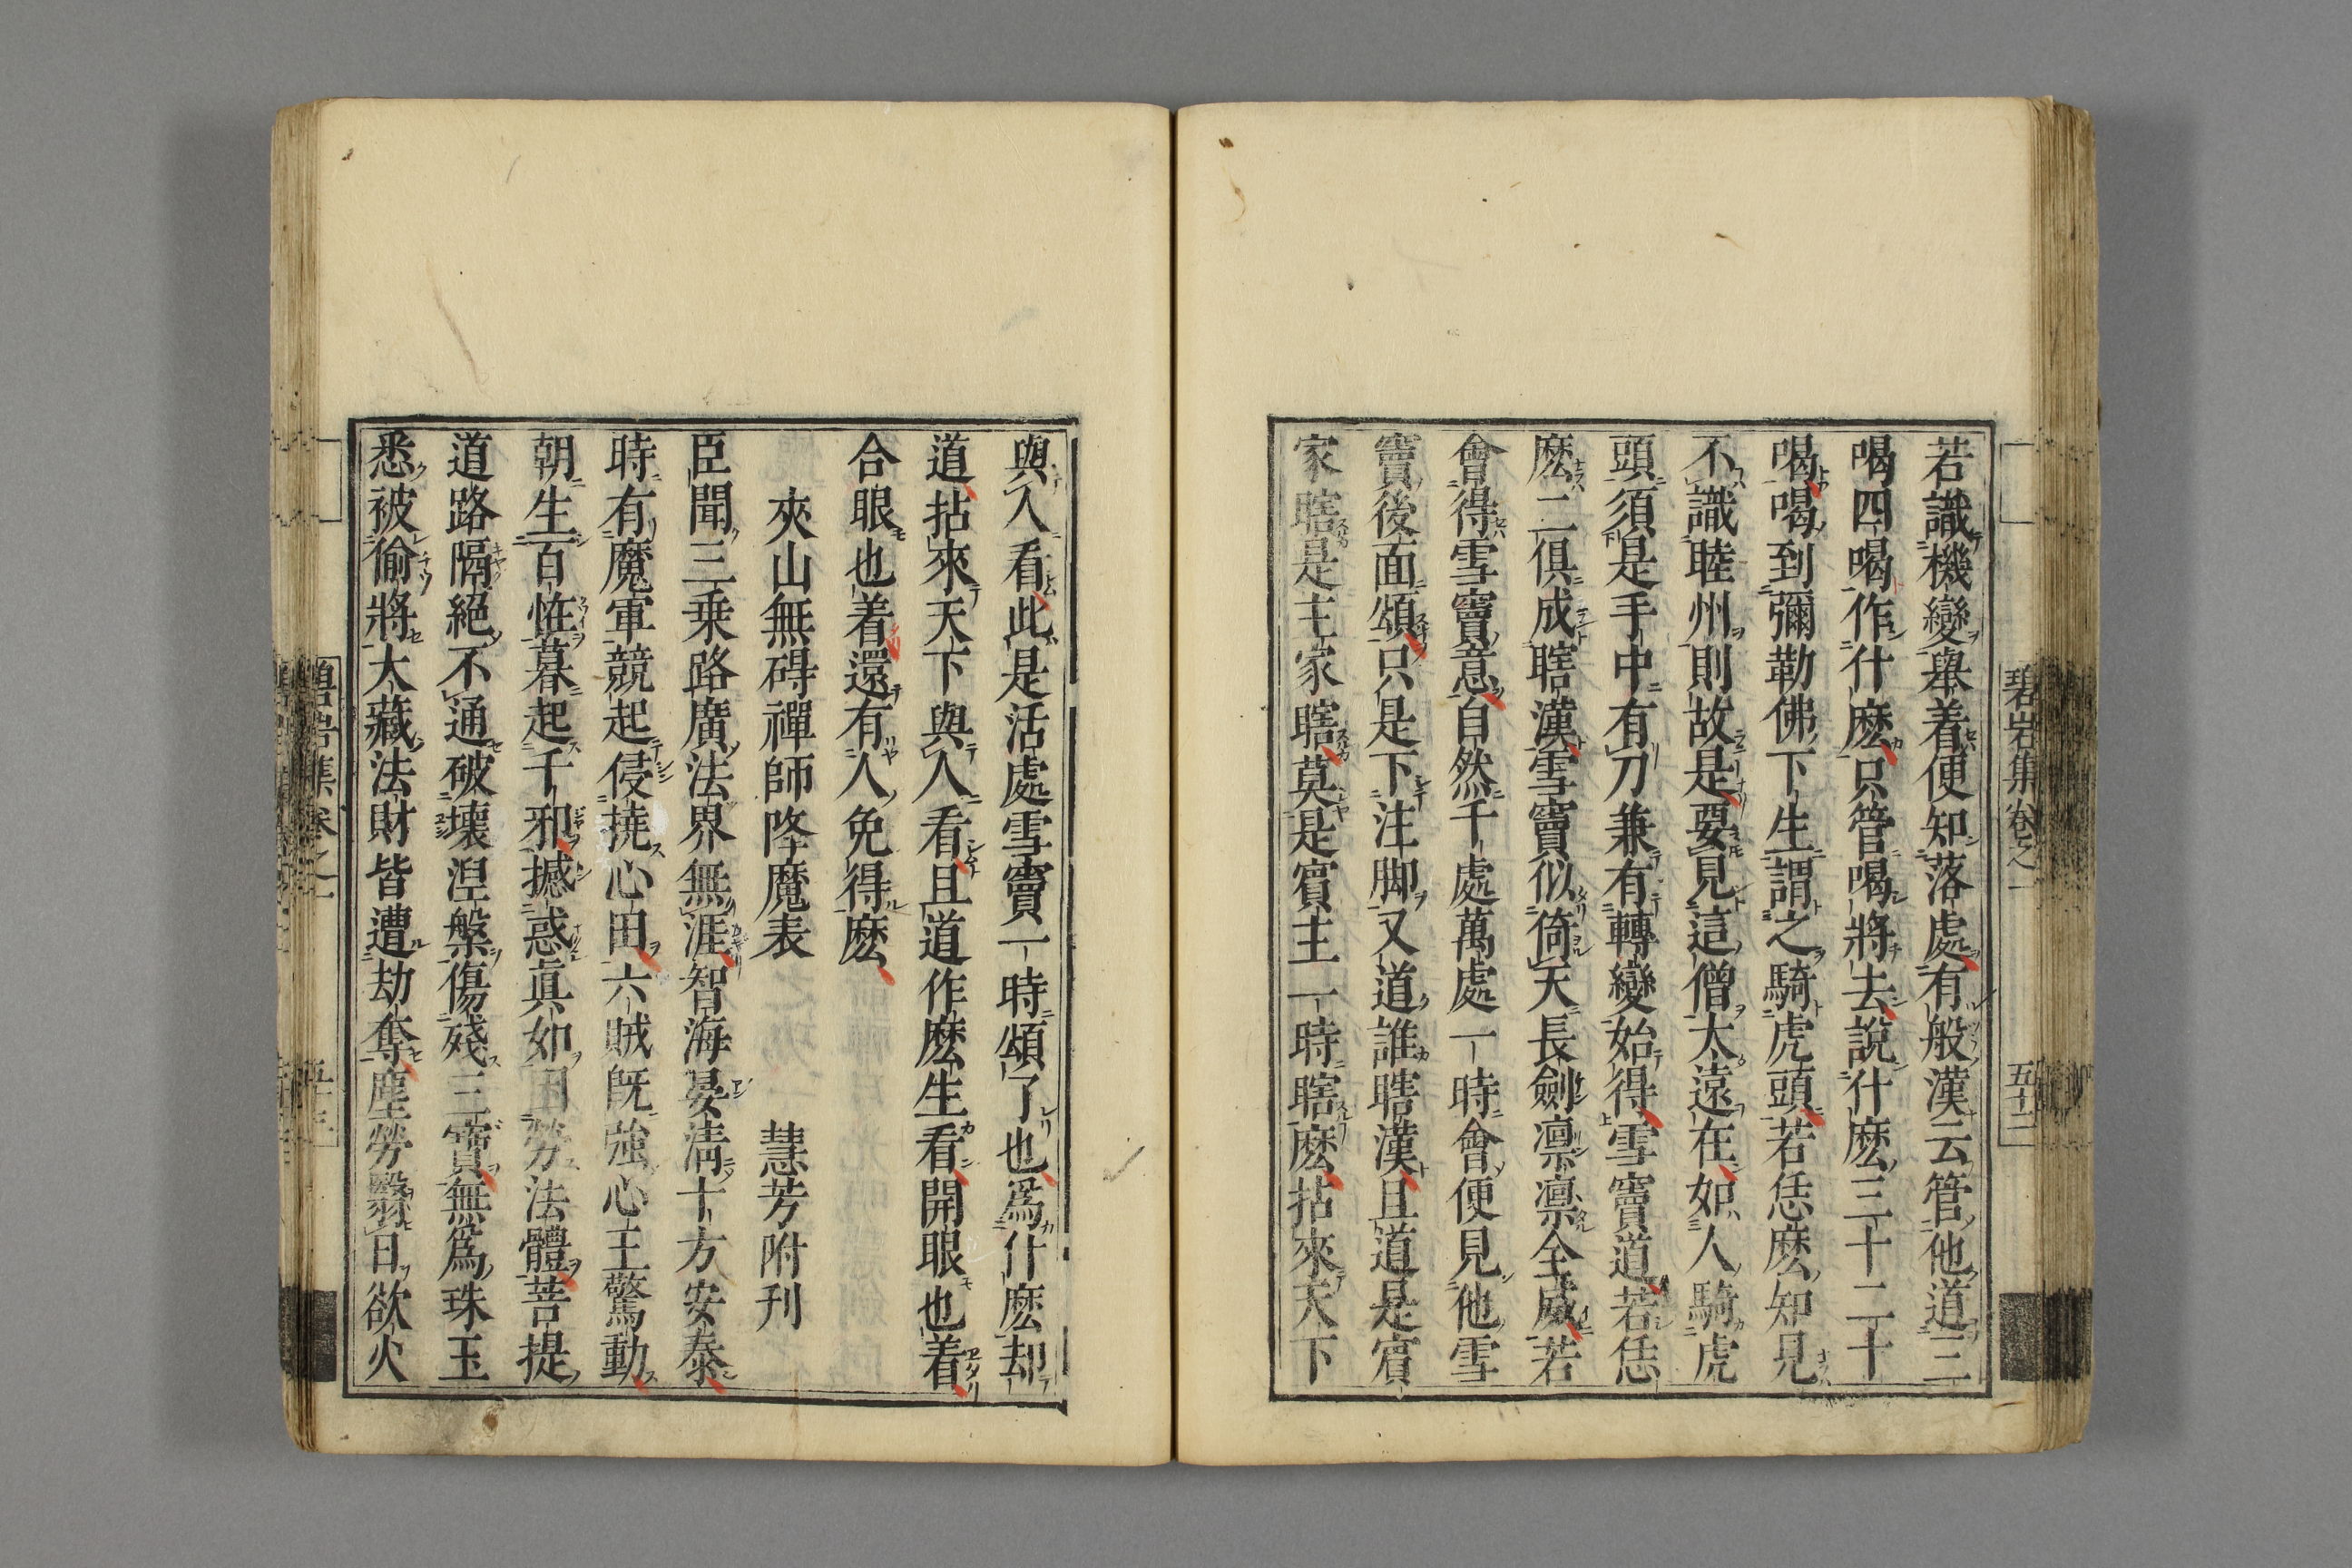 若識機變擧着便知落處有般漢云管他道三
喝四喝作什麽只管喝將去說什麽三十二十
喝喝到彌勒佛下生謂之騎虎頭若恁麽知見
不識睦州則故是要見這僧太遠在如人騎虎
頭須是手中有刀兼有轉變始得雪竇道若恁
麽二俱成瞎漢雪竇似倚天長劍凛凛全威若
會得雪竇意自然千處萬處一時會便見他雪
竇後面頌只是下注脚又道誰瞎漢且道是賓
家瞎是主家瞎莫是賓主一時瞎麽拈來天下
與人看此是活處雪竇一時頌了也爲什麽却
道拈來天下與人看且道作麽生看開眼也着
合眼也着還有人免得麽
夾山無碍禪師降魔表 慧芳附刊
臣聞三乗路廣法界無涯智海晏清十方安泰
時有魔軍競起侵撓心田六賊旣強心王驚動
朝生百恠暮起千邪撼惑眞如困勞法體菩提
道路隔絕不通破壞涅槃傷殘三寳無爲珠玉
悉被偷將大藏法財皆遭劫奪塵勞翳日欲火
碧岩集卷之一
五十二